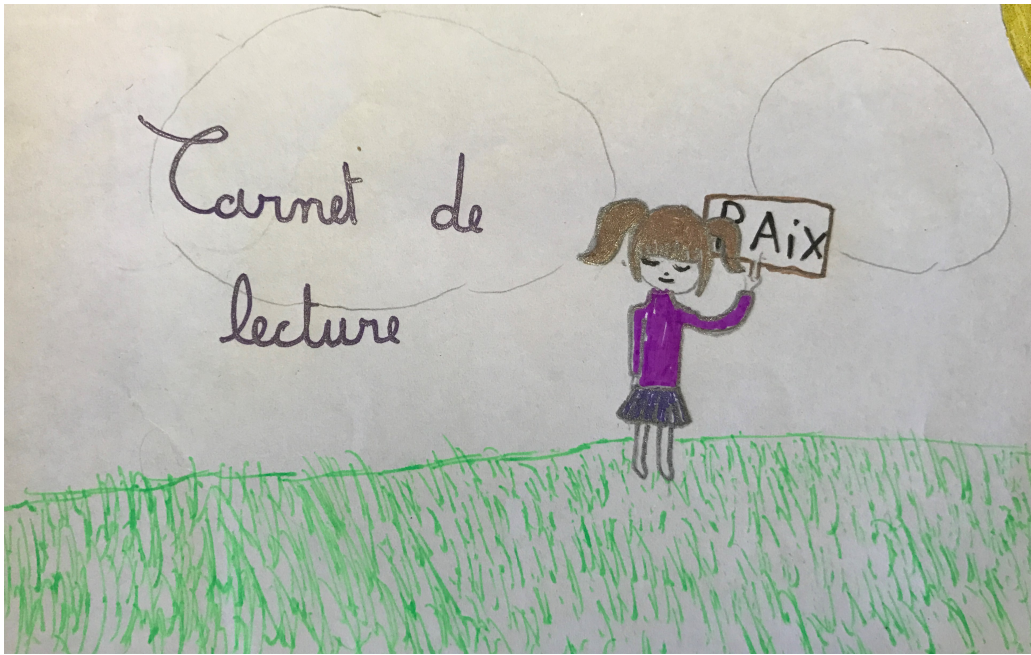 Carnet de
lecture
PAix